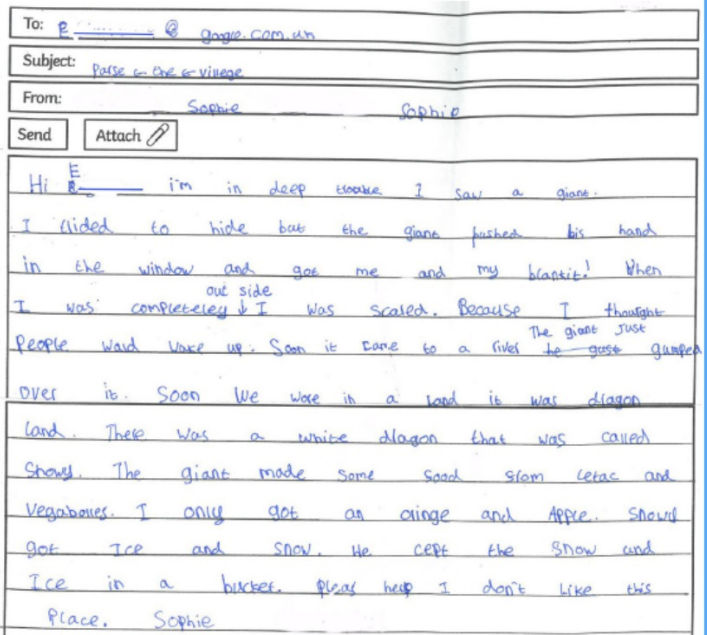 To: E @ google.com.un
Subject: Parse the village
From: Sophie Sophie
Send Attach
Hi E i'm in deep trouble I saw a giant.
I dided to hide but the giant pushed his hand
in the window and got me and my blantit! When
out side
I was completeley I was scared. Because I thought
The giant Just
People waud wake up. Soon it came to a river he gust gumped
over it. Soon We wore in a land it was dragon
land. There was a white dragon that was called
Snowy. The giant made some food from letac and
Vegaboues. I only got an oringe and Apple. Snowy
got Ice and snow. He cept the snow and
Ice in a bucket. pleas help I don't like this
Place. Sophie